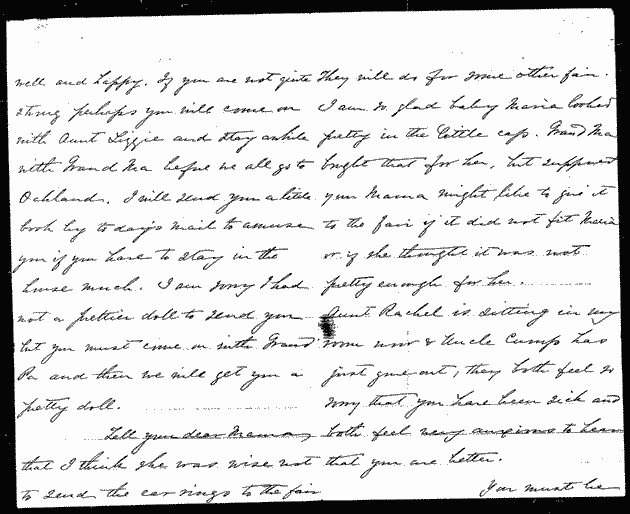 well and happy. If you are not quite
strong perhaps you will come on
with Aunt Lizzie and stay awhile
with Grand Ma before we all go to
Oakland. I will send you a little
book by to day's mail to amuse
you if you have to stay in the
house much. I am sorry I had
not a prettier doll to send you
but you must come on with Grand
Pa and then we will get you a
pretty doll.
Tell your dear Mama
that I think she was wise not
to send the ear rings to the fair
They will do for some other fair.
I am so glad baby Maria looked
pretty in the little cap. Grand Ma
bought that for her, but supposed
your Mama might like to give it
to the fair if it did not fit Maria
or if she thought it was not
pretty enough for her.
Aunt Rachel is sitting in my
room now & Uncle Cump has
just gone out, they both feel so
sorry that you have been sick and
both feel very anxious to hear
that you are better.
You must be